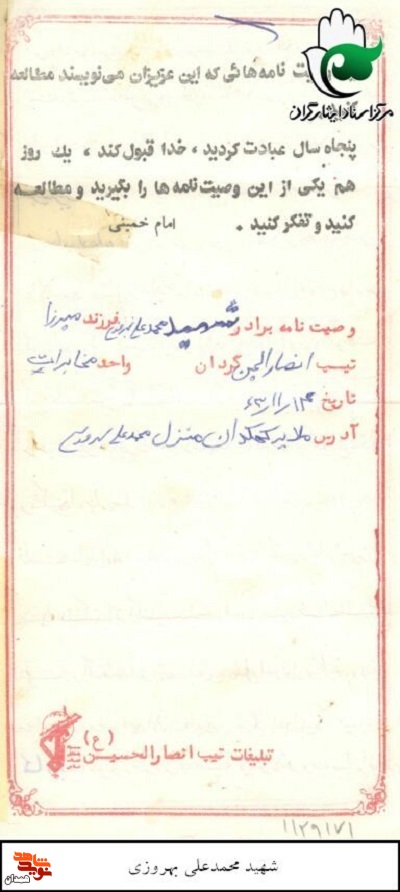 وصیت نامه هائی که این عزیزان می‌نویسند مطالعه
مرکز اسناد ایثارگران
پنجاه سال عبادت کردید، خدا قبول کند، یك روز
هم یکی از این وصیت‌نامه ها را بگیرید و مطالعه
کنید و تفکر کنید. امام خمینی
وصیت نامه برادر شهید محمدعلی بهروزی فرزند میرزا
تیپ انصارالحسین گردان واحد مخابرات
تاریخ
آدرس ملایر منزل محمدعلی بهروزی
تبلیغات تیپ انصارالحسین (ع)
۱۱۲۹۱۷۱
شهید محمدعلی بهروزی
نوید شاهد
همدان